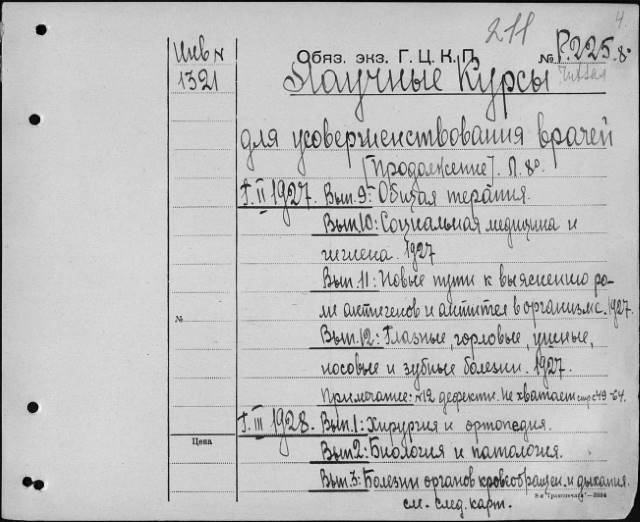 4.
211
Инв N
1321
Обяз. экз. Г. Ц. К. П. № Р.225.8°
Научные Курсы Читал
для усовершенствования врачей
[Продолжение]. Л. 8°.
Т. II 1927. Вып. 9: Общая терапия.
Вып. 10: Социальная медицина и
гигиена. 1927
Вып. 11: Новые пути к выяснению ро-
ли антигенов и антител в организме. 1927.
№
Вып. 12: Глазные, горловые, ушные,
носовые и зубные болезни. 1927.
Примечание: №12 дефектн. Не хватает стр. 49-64.
Т. III 1928. Вып. 1: Хирургия и ортопедия.
Цена
Вып 2: Биология и патология.
Вып. 3: Болезни органов кровообращен. и дыхания.
см. след. карт.